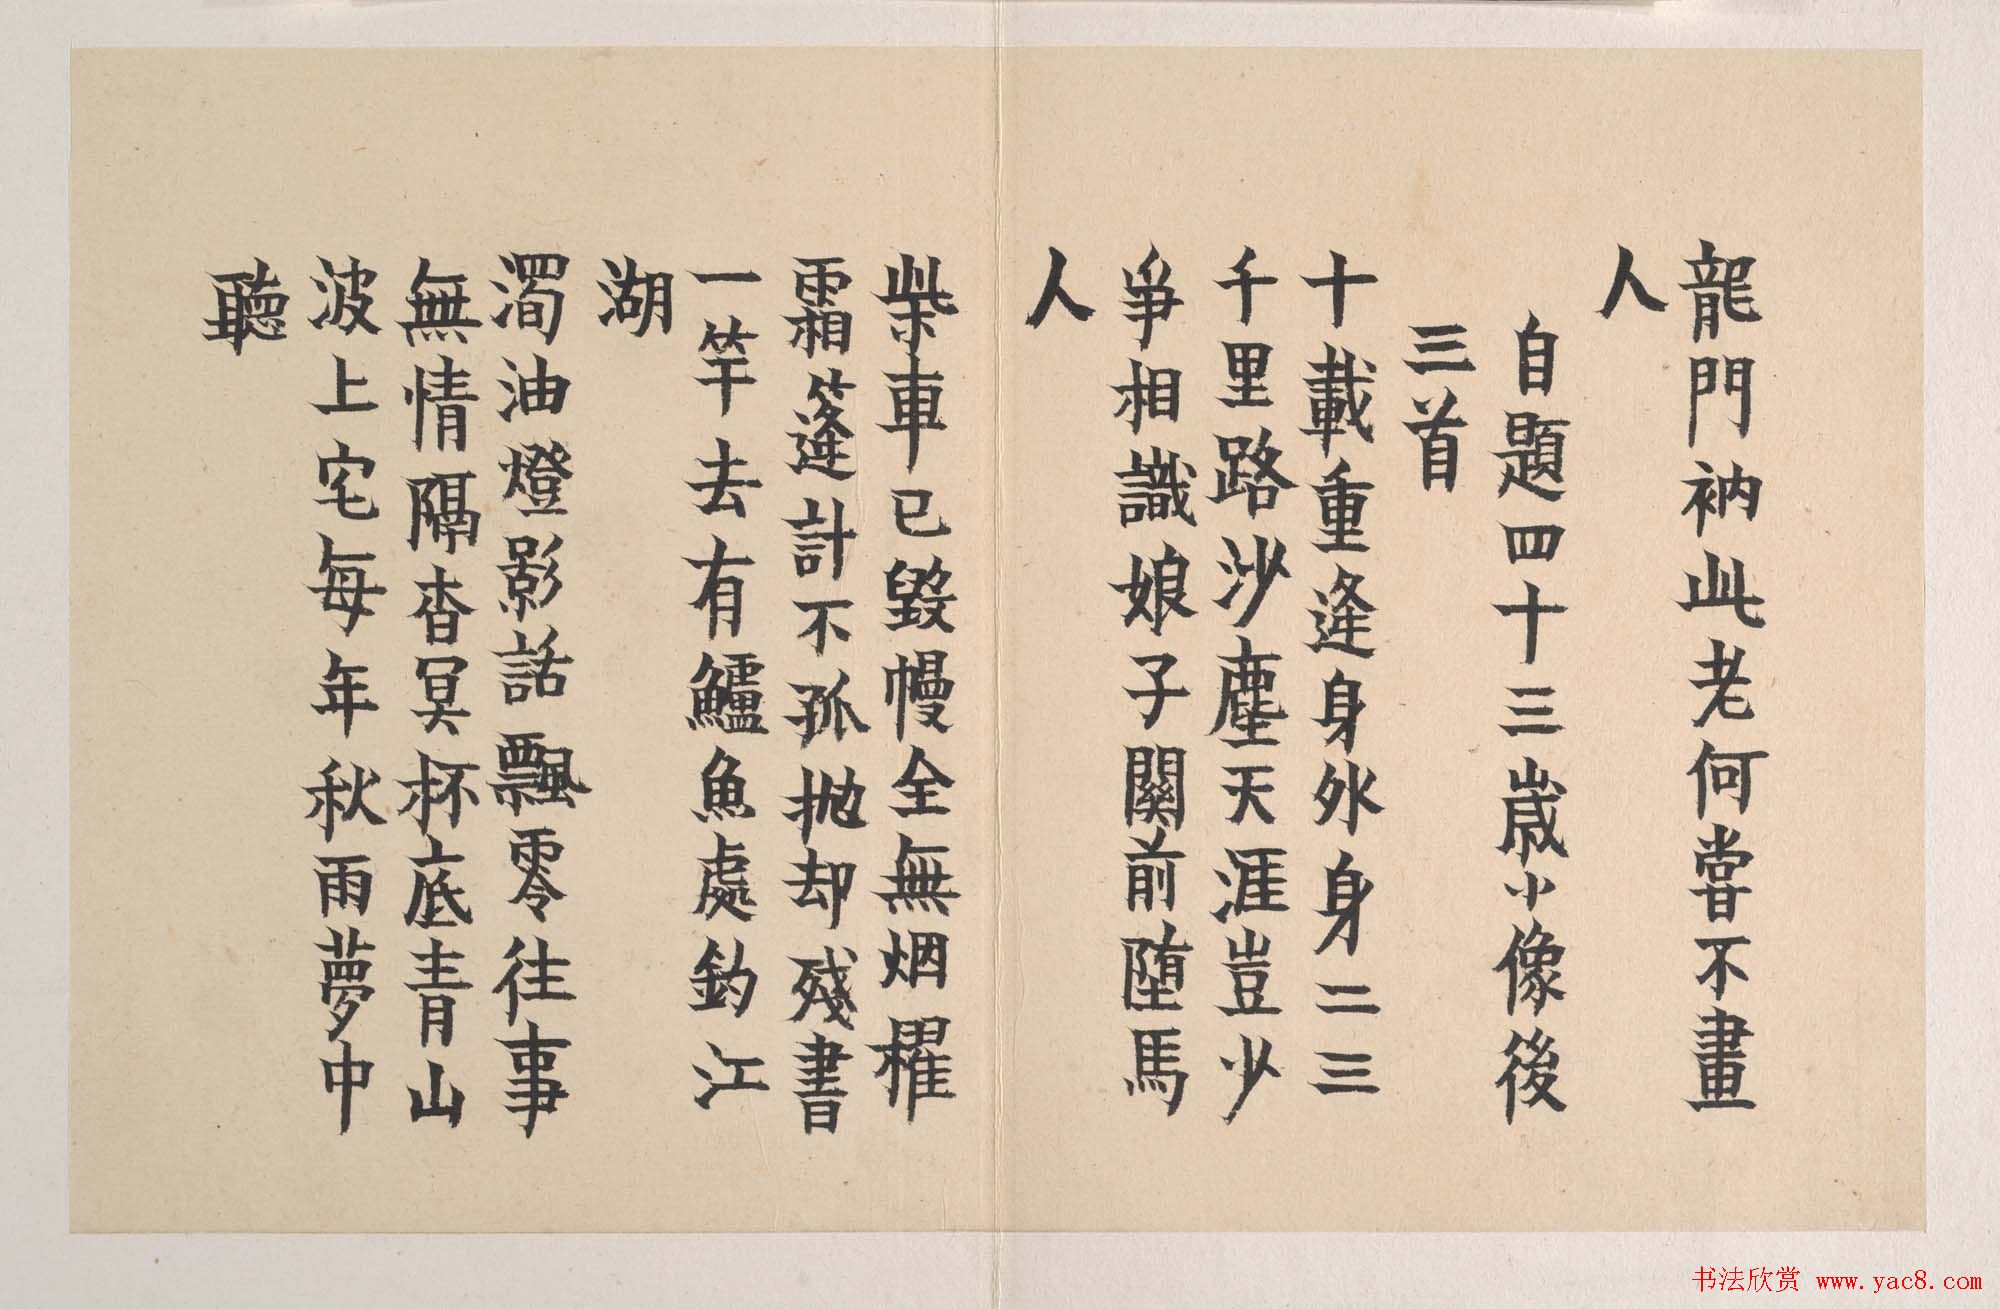 龍門衲此老何嘗不畫
人
自題四十三歲小像後
三首
十載重逢身外身二三
千里路沙塵天涯豈少
爭相識娘子關前墮馬
人
柴車已毀幔全無烟櫂
霜篷計不孤拋却殘書
一竿去有鱸魚處釣江
湖
濁油燈影話飄零往事
無情隔杳冥杯底青山
波上宅每年秋雨夢中
聽
书法欣赏 www.yac8.com